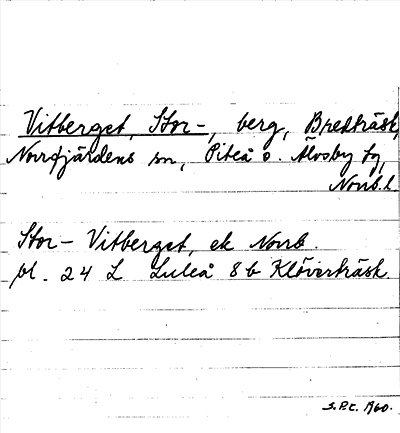 Vitberget, Stor-, berg, Bredträsk,
Norrfjärdens sn, Piteå o. Älvsby tg,
Norrb. l.
Stor- Vitberget, ek Norrb.
bl. 24 L Luleå 8 b Klöverträsk
S.P.C. 1960.